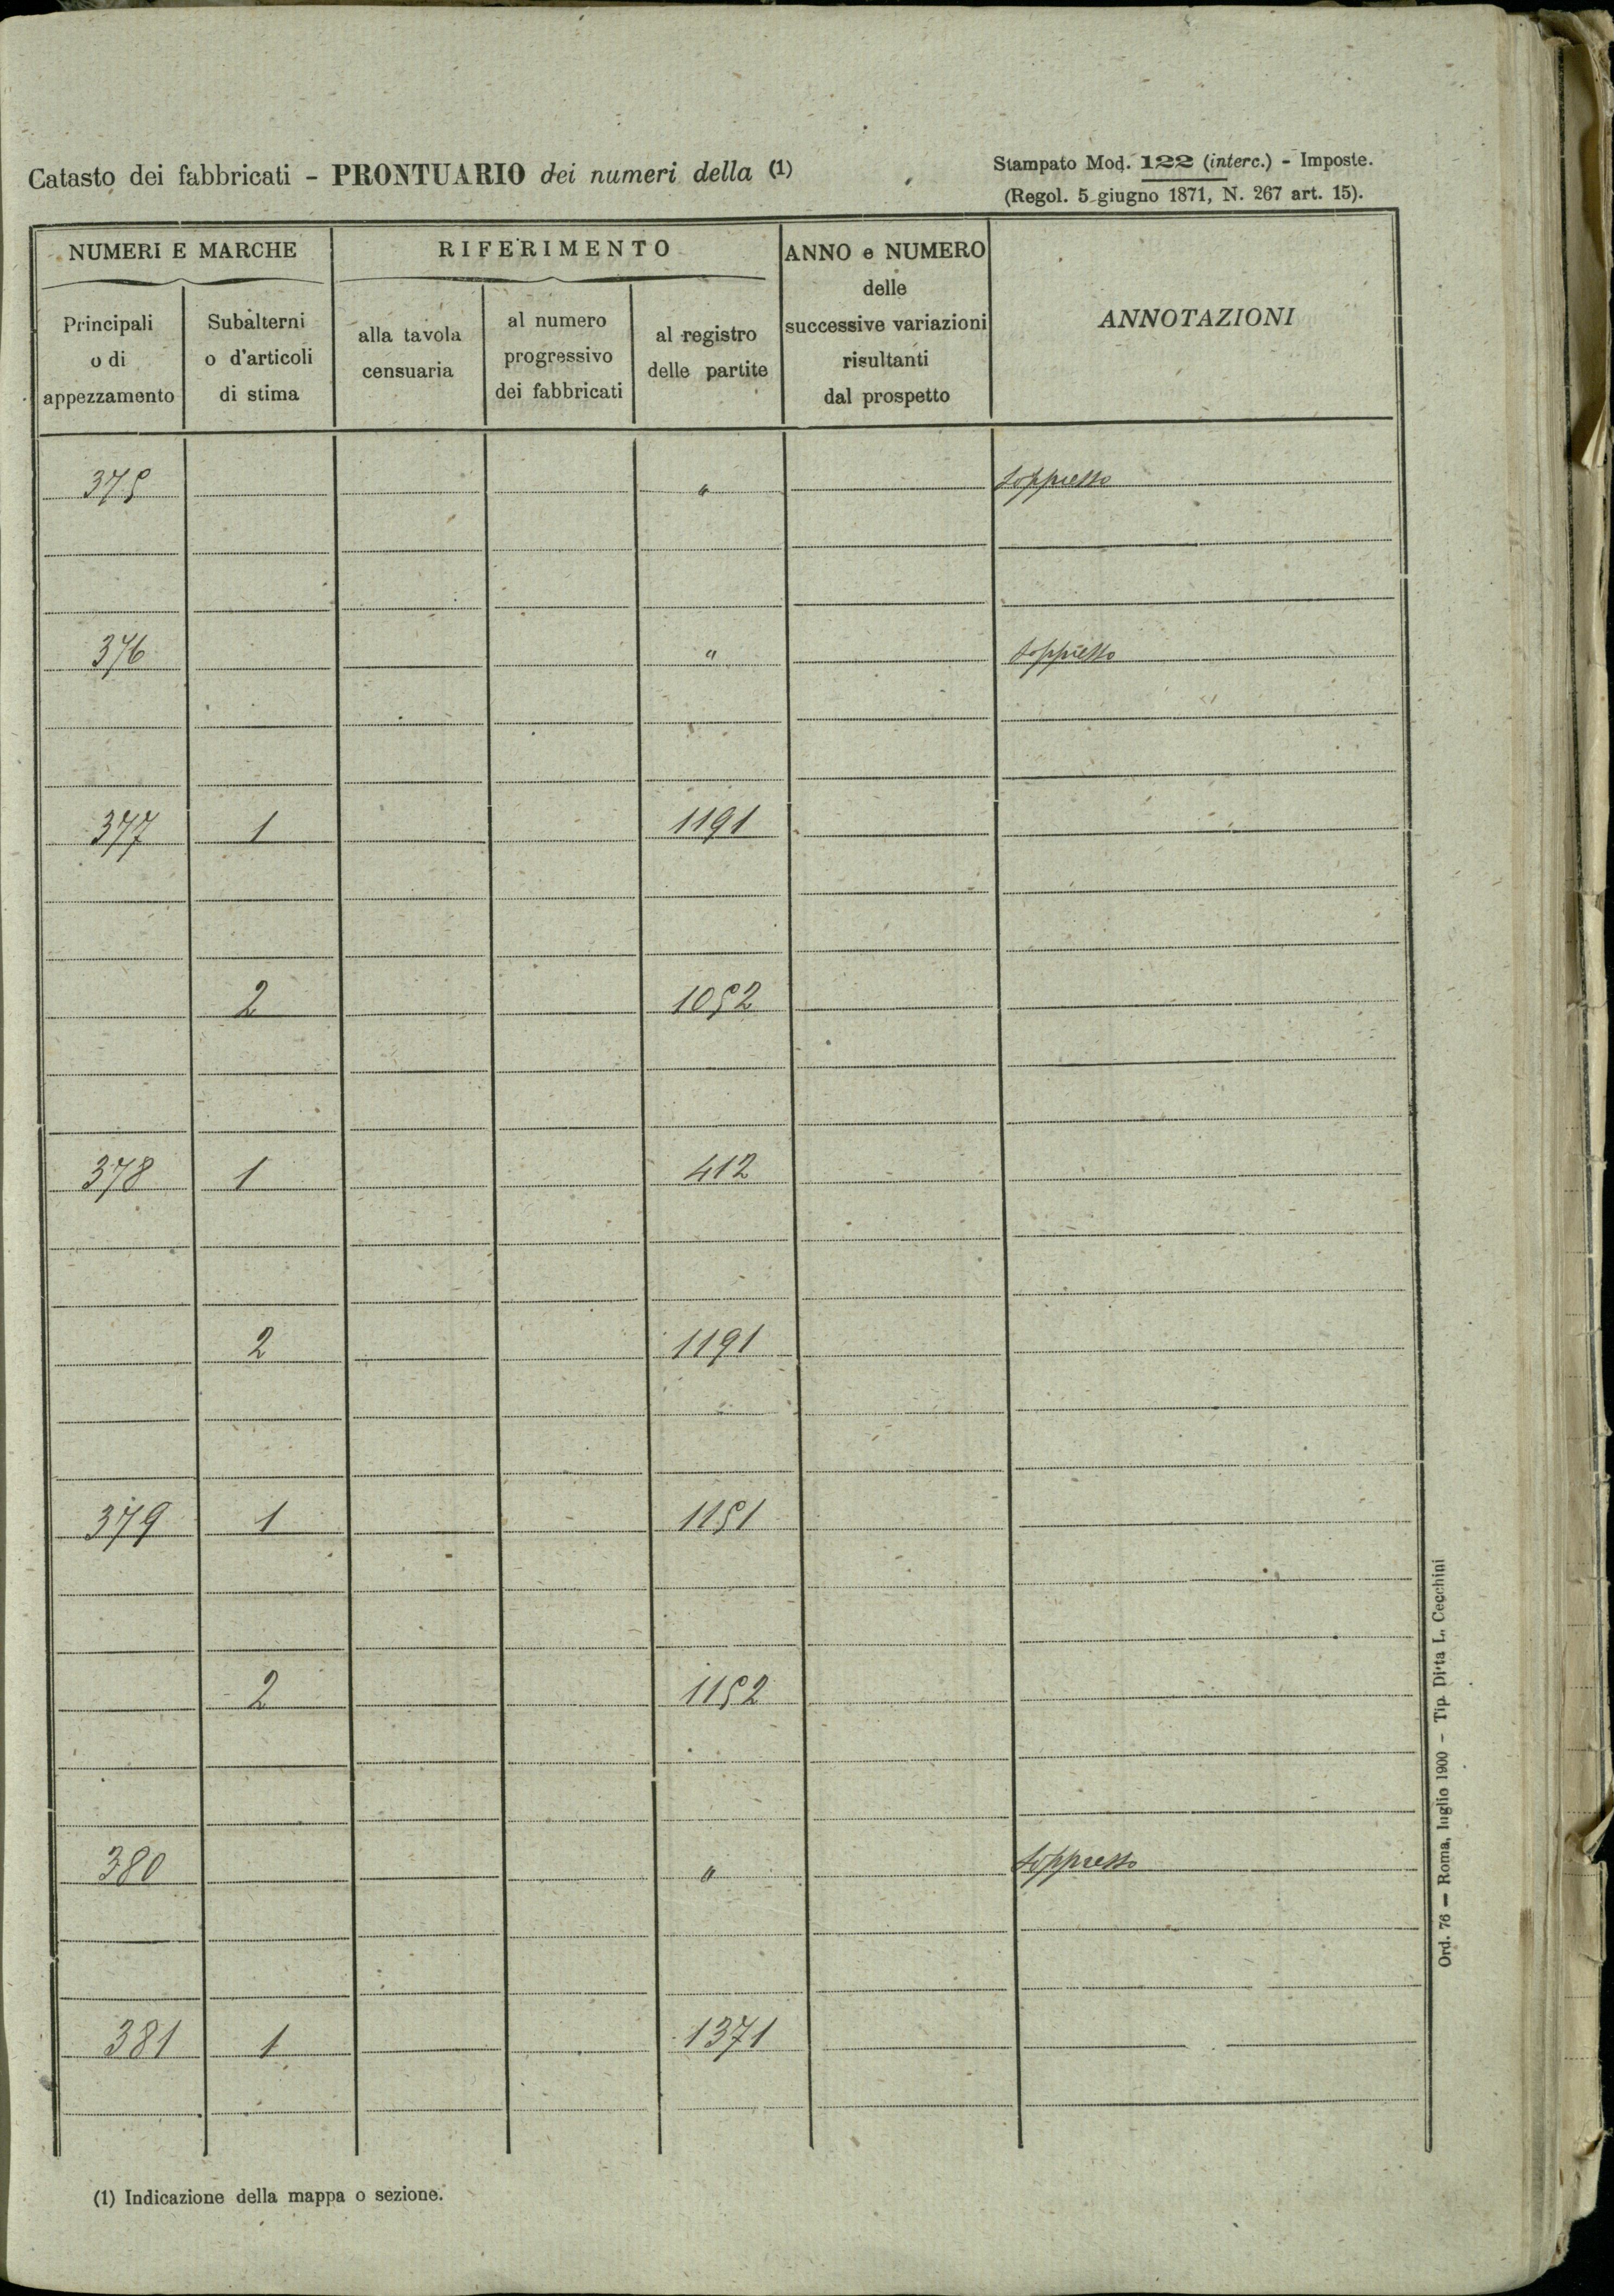 Catasto dei fabbricati - PRONTUARIO dei numeri della (1)
Stampato Mod. 122 (interc.) - Imposte.
(Regol. 5 giugno 1871, N. 267 art. 15).
NUMERI E MARCHE
RIFERIMENTO
ANNO e NUMERO
delle
successive variazioni
risultanti
dal prospetto
ANNOTAZIONI
Principali
o di
appezzamento
Subalterni
o d'articoli
di stima
alla tavola
censuaria
al numero
progressivo
dei fabbricati
al registro
delle partite
375 " soppresso
376 " soppresso
377 1 1191
2 1052
378 1 412
2 1191
379 1 1151
2 1152
380 " soppresso
381 1 1371
(1) Indicazione della mappa o sezione.
Ord. 76 — Roma, luglio 1900 - Tip. Ditta L. Cecchini